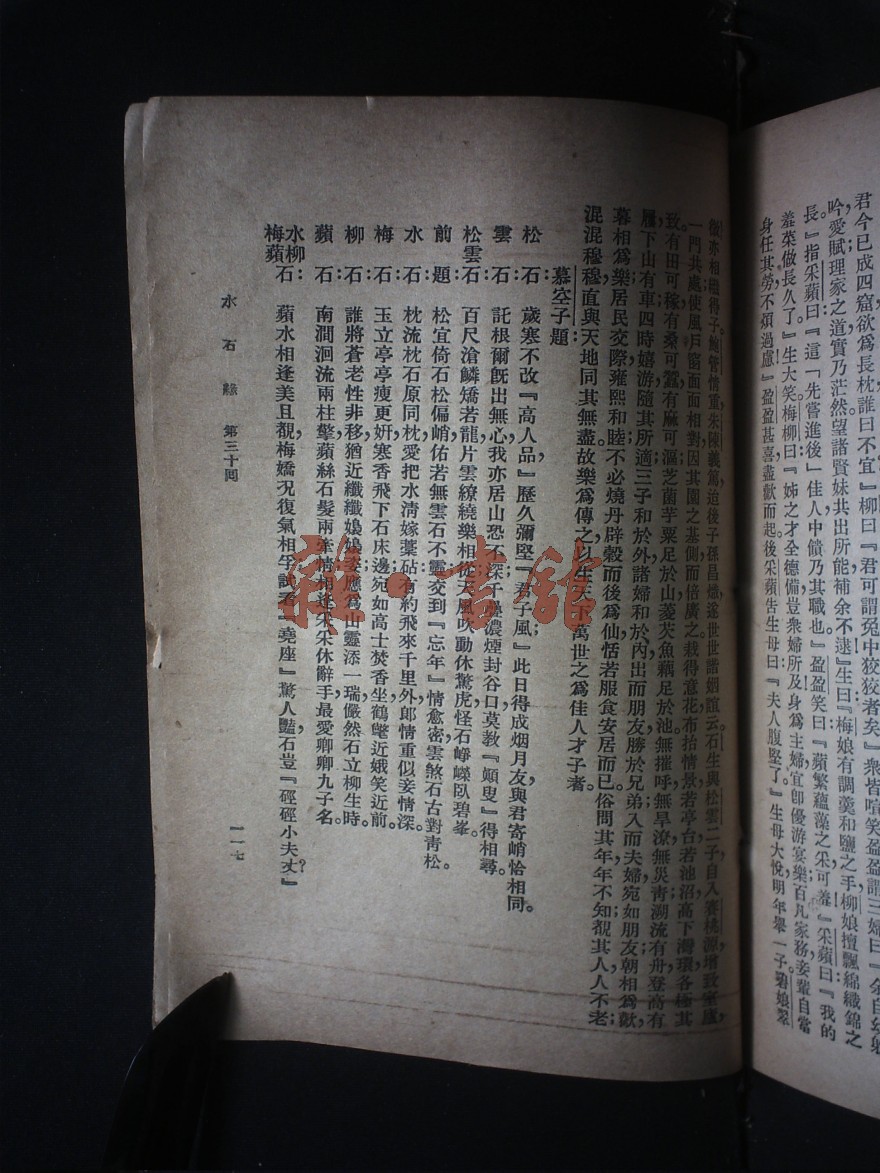 君今已成四窟欲爲長枕誰曰不宜』柳曰『君可謂兔中狡狡者矣』衆皆喧笑盈盈謂三婦曰『余自幼躭
吟愛賦理家之道實乃茫然望諸賢妹共出所能補余不逮』生曰『梅娘有調羹和鹽之手柳娘擅飄綿織錦之
長。』指采蘋曰『這「先嘗進後」佳人中饋乃其職也』盈盈笑曰『蘋繁蘊藻之采可羞』采蘋曰『我的
羞菜做長久了』生大笑梅柳曰『姊之才全德備豈衆婦所及身爲主婦宜卽優游宴樂百凡家務妾輩自當
身任其勞不煩過慮』盈盈甚喜盡歡而起後采蘋告生母曰『夫人腹堅了』生母大悅明年舉一子碧娘翠
亦相繼得子鮑管情重朱陳義篤迨後子孫昌熾遂世世諧姻誼云石生與松雲二子自入賽桃源增致室廬,
一門共處使風戶窗面面相對因其園之基側而倍廣之栽得意花布抬情景若亭台若池沼高下灣環各極其
致。有田可稼有桑可蠶有麻可漚芝菌芋粟足於山菱芡魚藕足於池無摧呼無旱潦無災靑溯流有舟登高有
屜下山有車四時嬉游隨其所適三子和於外諸婦和於內出而朋友勝於兄弟入而夫婦宛如朋友朝相爲歡,
暮相爲樂居民交際雍熙和睦不必燒丹辟穀而後爲仙恬若服食安居而已俗問其年年不知覩其人人不老;
混混穆穆,直與天地同其無盡。故樂爲傳之以生天下萬世之爲佳人才子者。
慕空子題
松石: 歲寒不改『高人品,』歷久彌堅『君子風』此日得成烟月友,與君寄峭恰相同。
雲石: 託根爾旣出無心,我亦居山恐不深;千疊濃煙封谷口,莫敎『顚叟』得相尋。
松雲石: 百尺滄鱗矯若龍,片雲繚繞樂相從;天風吹動休驚虎,怪石崢嶸臥碧峯。
前題: 松宜倚石松偏峭,佑若無雲石不靈;交到『忘年』情愈密,雲煞石古對靑松。
水石: 枕流枕石原同枕,愛把水清嫁藁砧;有約飛來千里外,郎情重似妾情深。
梅石: 玉立亭亭瘦更妍,寒香飛下石床邊;宛如高士焚香坐,鶴氅近娥笑近前。
柳石: 誰將蒼老性非移,猶近纖纖嬝嬝姿;應爲山靈添一瑞,儼然石立柳生時。
蘋石: 南澗洄流兩柱擎,蘋絲石髮兩牽情;相逢采采休辭手,最愛卿卿九子名。
水柳梅蘋石: 蘋水相逢美且覩,梅嬌況復氣相乎;試看一堯座』驚人豔,石豈『硜硜小夫丈?』
水石緣 第三十回
一一七
雜·書館